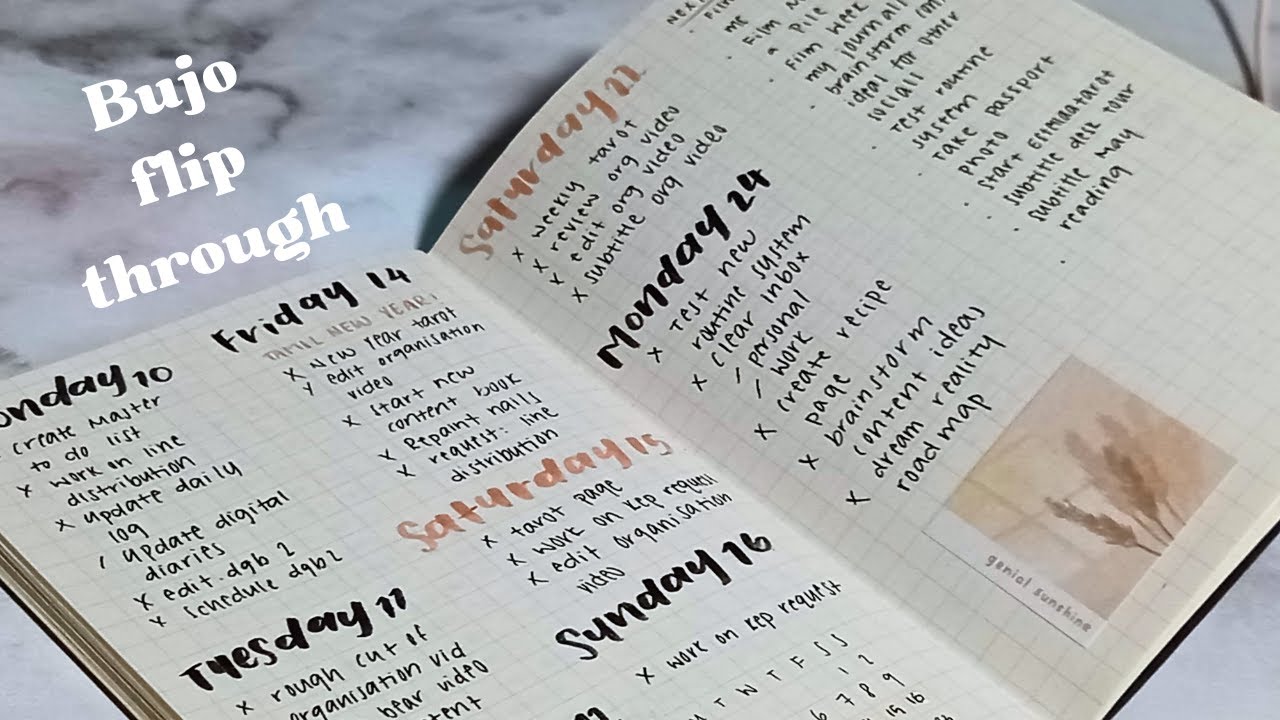 Bujo
flip
through
onday 10
create master
to do list
x work on line
distribution
x update daily
log
/ update digital
diaries
x edit dgb 2
x schedule dgb2
Tuesday 11
x rough cut of
organisation vid
bear video
Friday 14
TAMIL NEW YEAR!
x New Year tarot
edit organisation
video
x start new
content book
x Repaint nails
x request: line
distribution
Saturday 15
x tarot page
x work on Kep request
x edit organisation
video
Sunday 16
x work on kep request
T W T F S S
1 2
6 7 8 9
14 15 16
Saturday 22
x weekly tarot
x review org video
x edit org video
x subtitle org video
Monday 24
x Test new
routine system
x clear inbox
/ personal
/ work
x create recipe
page
x brainstorm
content ideas
x dream reality
roadmap
me
a pile
my journal
brainstorm
ideal for other
social
· Test routine
system
· Take passport
photo
· start
· subtitle desk tour
· subtitle may
reading
genial sunshine